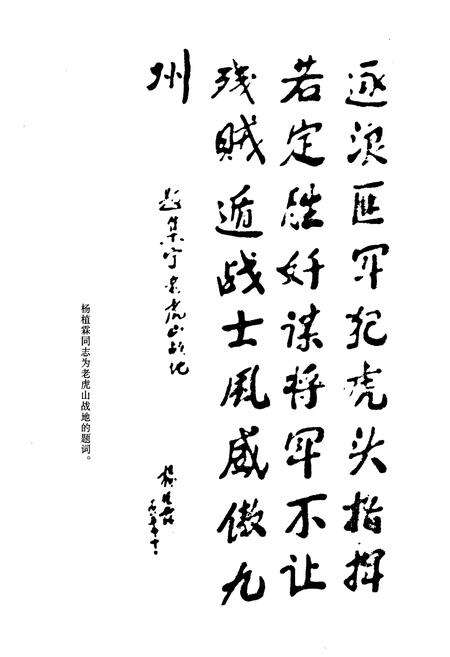 逐浪匪军犯虎头指挥
若定胜奸谋将军不让
残贼遁战士风威傲九
州
题集宁老虎山战地
杨植霖
杨植霖同志为老虎山战地的题词。